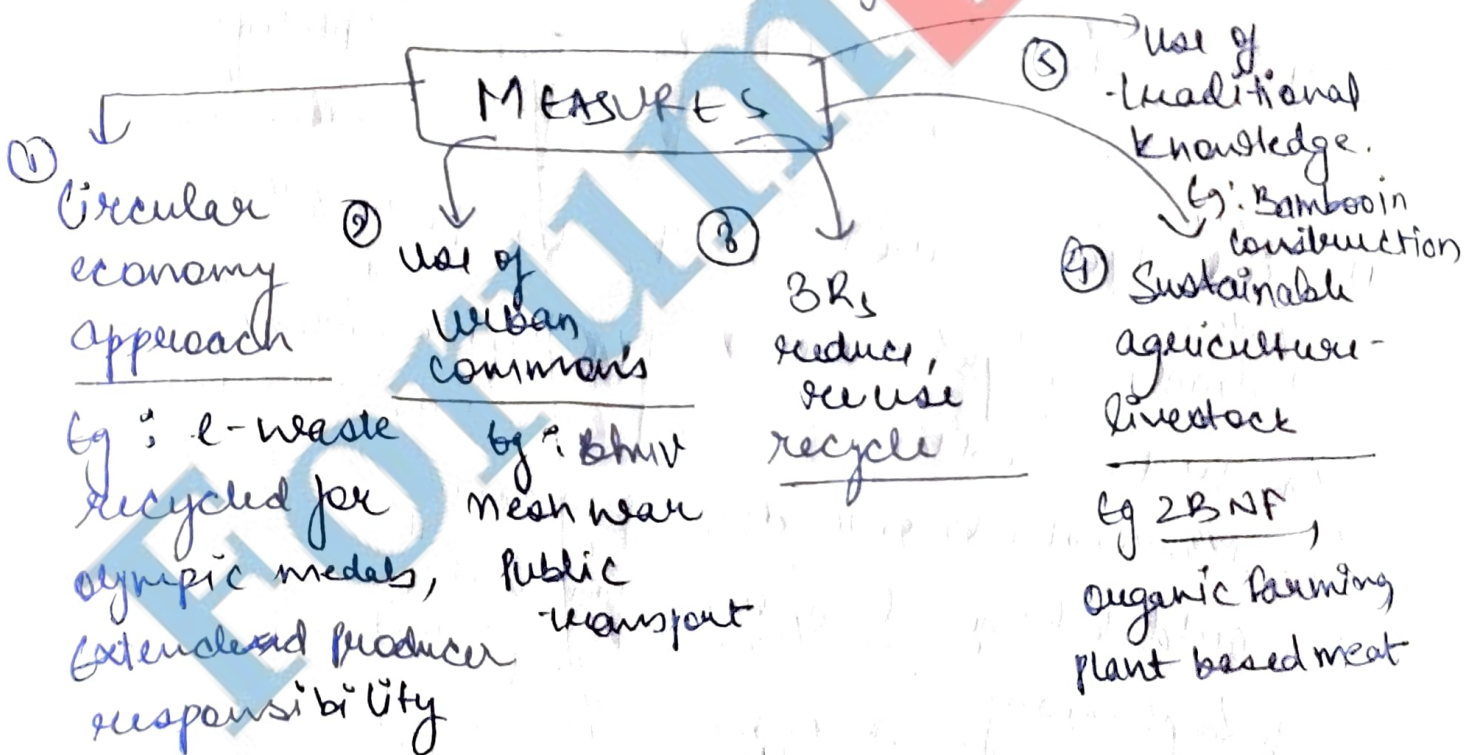 MEASURES
①
Circular
economy
approach
Eg: e-waste
recycled for
olympic medals,
Extended Producer
responsibility
②
Use of
urban
commons
Eg: Bhuv
neshwar
Public
transport
③
3Rs
reduce,
reuse
recycle
④
Sustainable
agriculture-
livestock
Eg ZBNF,
organic farming,
plant based meat
⑤
Use of
traditional
knowledge.
Eg: Bamboo in
construction
Forum